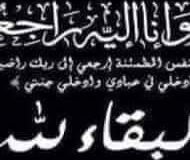 وإنا إليه راجعو
نفس المطمئنة إرجعي إلى ربك راضية
دخلي في عبادي وادخلي جنتي ﴾
لبقاء لله